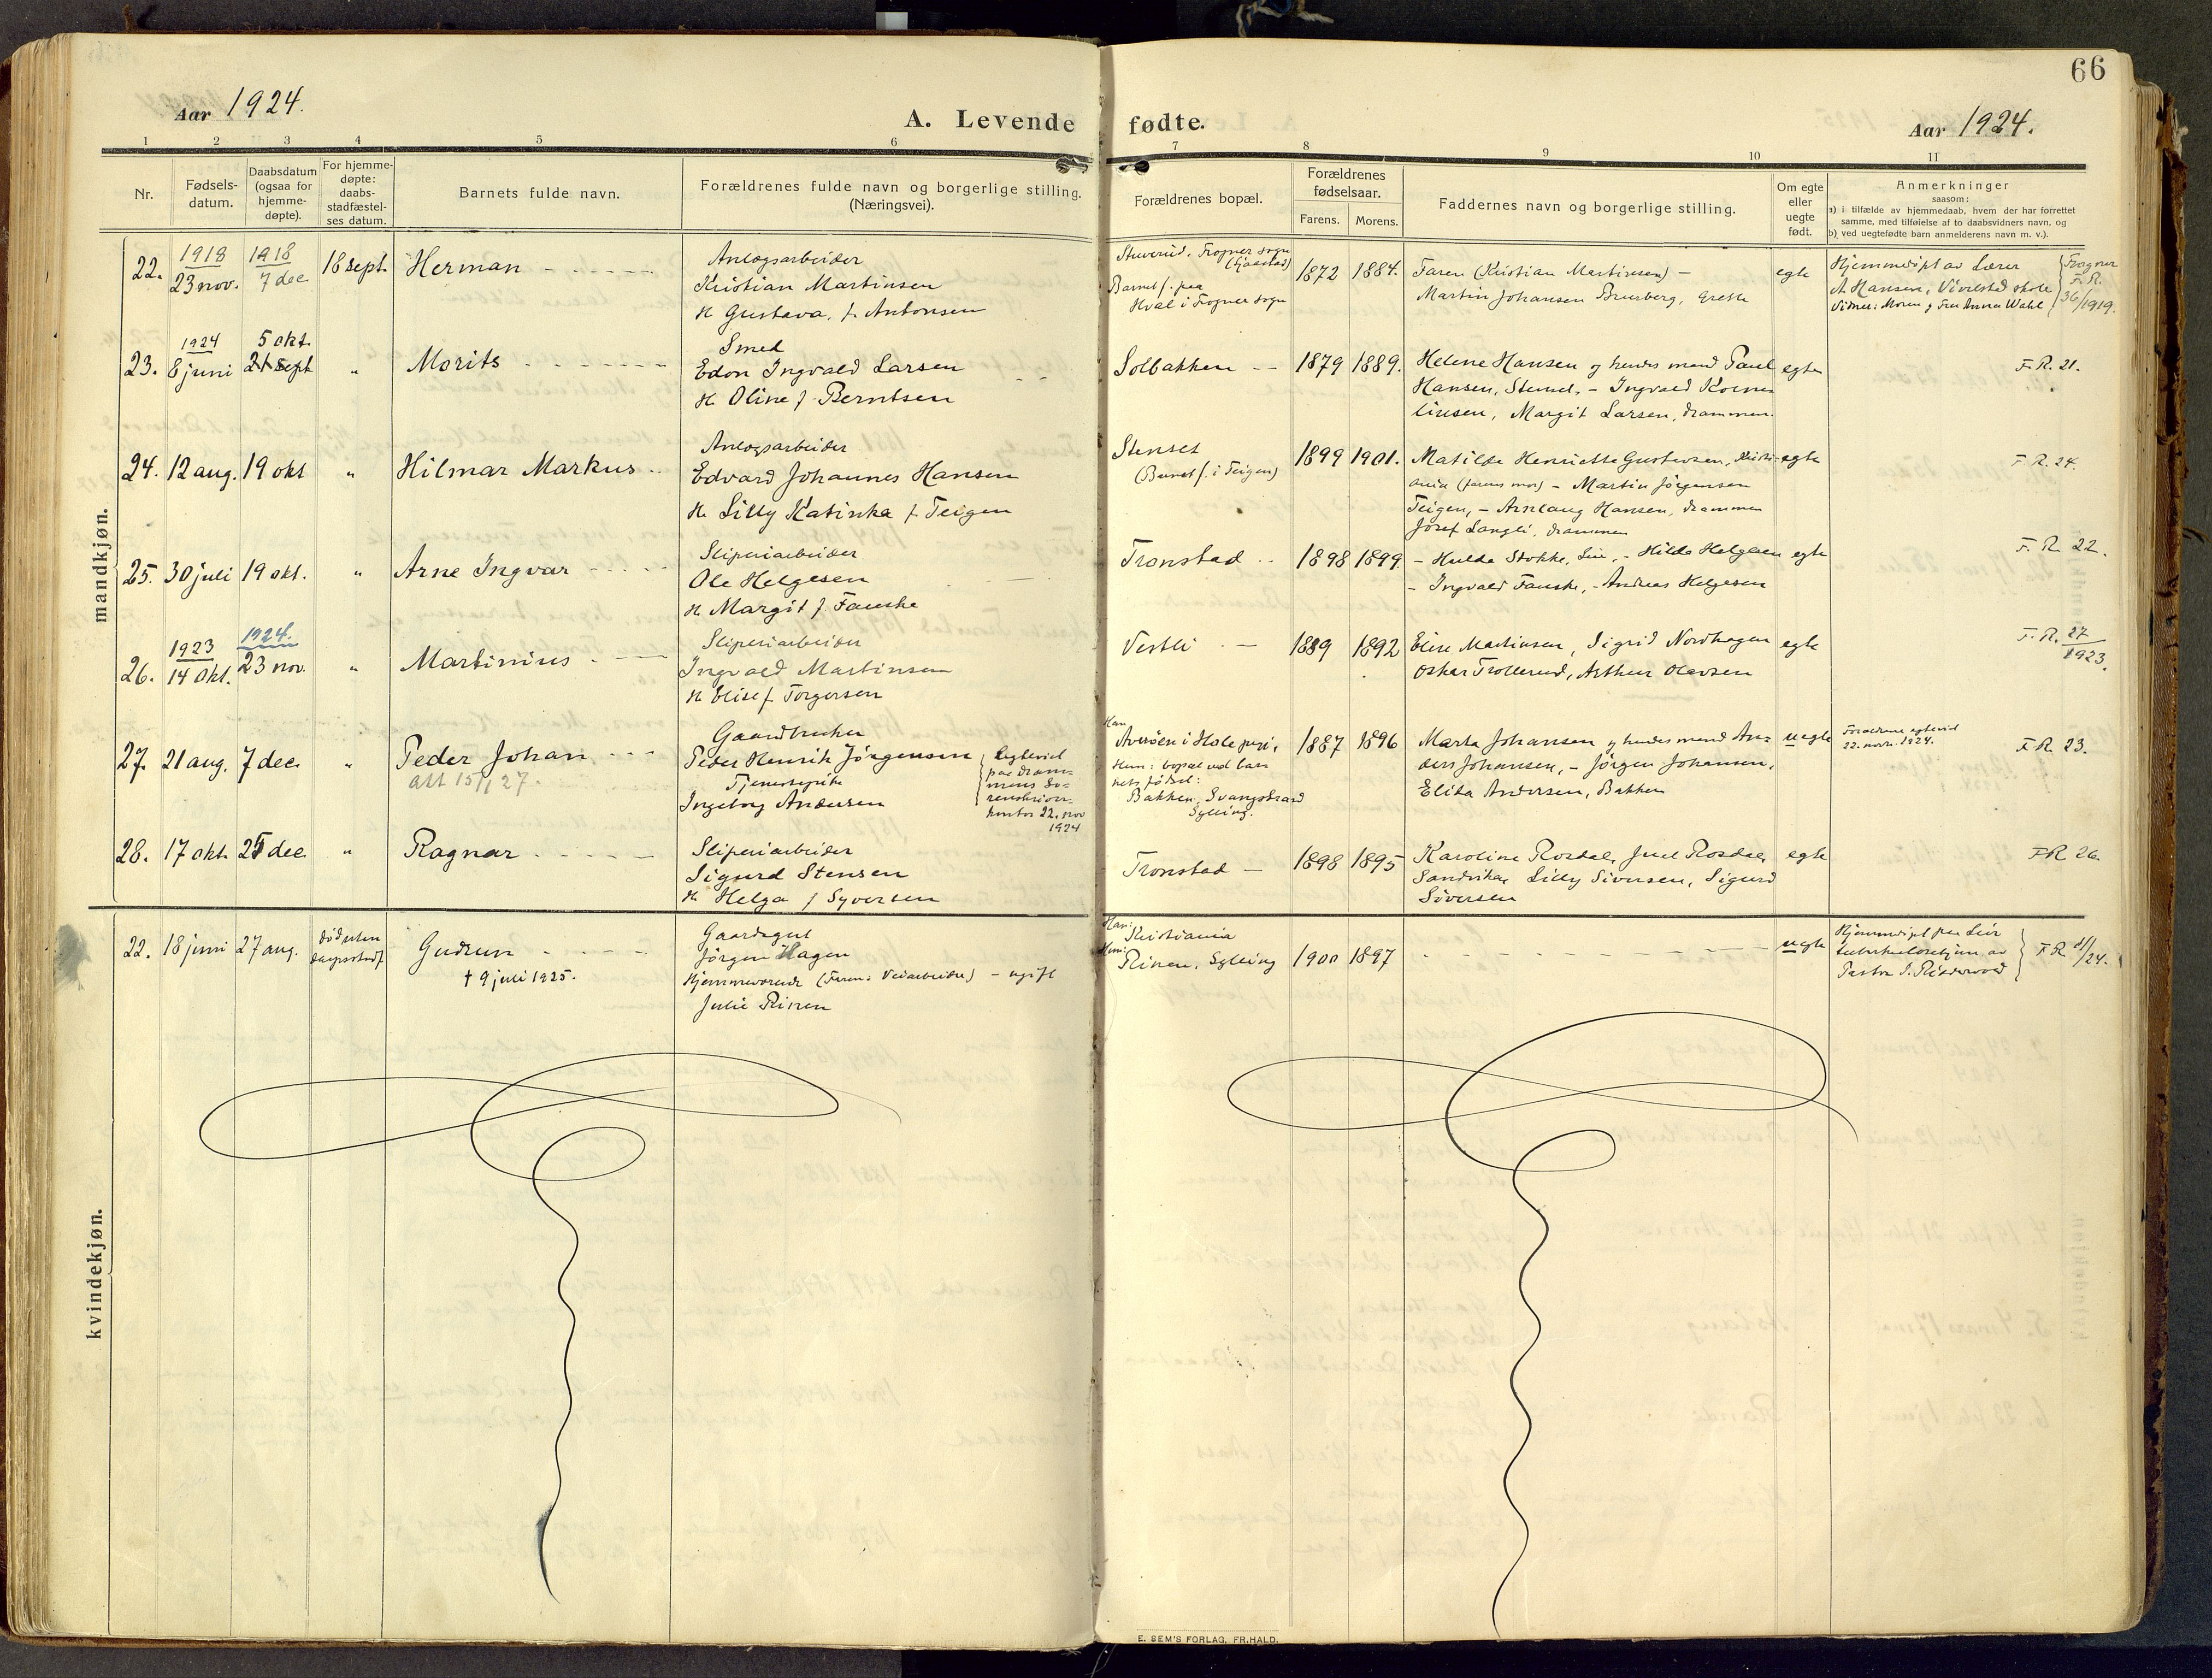 66
Aar 1924.
A. Levende fødte.
Aar 1924.
1 2 3 4 5 6 7 8 9 10 11
Nr.
Fødsels-
datum.
Daabsdatum
(ogsaa for
hjemme-
døpte).
For hjemme-
døpte:
daabs-
stadfæstel-
ses datum.
Barnets fulde navn.
Forældrenes fulde navn og borgerlige stilling.
(Næringsvei).
Forældrenes bopæl.
Forældrenes
fødselsaar.
Farens. Morens.
Faddernes navn og borgerlige stilling.
Om egte
eller
uegte
født.
Anmerkninger
saasom:
a) i tilfælde av hjemmedaab, hvem der har forrettet
samme, med tilføielse af to daabsvidners navn, og
b) ved uegtefødte barn anmelderens navn m. v.).
mandkjøn.
22.
1918
23 nov.
1918
7 dec
18 sept.
Herman
Anlægsarbeider
Kristian Martinsen
H Gustava, f. Antonsen
Stuverud, Frogner sogn
Barnet f. paa
Hval i Frogner sogn
1872 1884.
Faren (Kristian Martinsen) –
Martin Johansen Bruerberg, Grette
egte
Hjemmedøpt av Lærer
A Hansen, Vivelstad skole
Vidner: Moren og Fru Anna Wahl
Frogner
F.R.
36/1919.
23.
1924
8 juni
5 okt.
21 sept
"
Morits
Smed
Edon Ingvald Larsen
H. Oline f. Berntsen
Solbakken
1879 1889.
Helene Hansen og hendes mand Paul
Hansen, Stenset, – Ingvald Korne-
liusen, Margit Larsen, Drammen.
egte
F.R. 21.
24. 12 aug. 19 okt "
Hilmar Markus
Anlægsarbeider
Edvard Johannes Hansen
H. Lilly Katinka f. Teigen
Stenset
(Barnet f. i Teigen)
1899 1901.
Matilde Henriette Gustavsen, Kristi-
ania (farens mor) – Martin Jørgensen
Teigen, – Arnlaug Hansen, Drammen
Josef Langli, Drammen
egte
F.R. 24.
25. 30 juli 19 okt. "
Arne Ingvar
Sliperiarbeider
Ole Helgesen
H Margit f. Fauske
Tronstad
1898 1899
– Hulda Stokke, Lier, – Hilda Helgesen
– Ingvald Fauske, – Andreas Helgesen
egte
F. R. 22.
26.
1923
14 okt.
1924.
23 nov.
"
Martinius
Sliperiarbeider
Ingvald Martinsen
H Elise f. Torgersen
Vestli
1889 1892
Elise Martinsen, Sigrid Nordhagen
Oskar Trollerud, Arthur Olavsen
egte
F.R. 27
1923.
27. 21 aug. 7 dec. "
Peder Johan
att 15/1 27.
Gaardbruker
Peder Henrik Jörgensen
Tjenestepike
Ingeborg Andersen
Egteviet
paa Dram-
mens So-
renskriver-
kontor 22. nov
1924
Han:
i Hole
Hun: bopæl ved bar-
nets fødsel:
Bakken, Svangstrand
Sylling.
1887 1896
Marta Johansen og hendes mand An-
ders Johansen, – Jörgen Johansen,
Elida Andersen, Bakken
uegte
Forældrene egteviet
22. novbr. 1924.
F.R. 23.
28. 17 okt. 25 dec. "
Ragnar
Sliperiarbeider
Sigurd Stensen
H Helga f Syversen
Tronstad
1898 1895
Karoline Rosdal, Juel Rosdal,
Sandvika, Lilly Siversen, Sigurd
Siversen
egte
FR 26.
kvindekjøn.
22. 18 juni 27 aug.
død uten
daapsstadf.
Gudrun
† 9 juli 1925.
Gaardsgut
Jörgen Hagen
Hjemmeværende (Faren: Veiarbeider) – ugift
Julie Rinen
Han:
Kristiania
Hun:
Rinen, Sylling
1900 1897
uegte
Hjemmedøpt paa Lier
tuberkulosehjem av
Pastor
F R /24.
E. SEM'S FORLAG, FR.HALD.